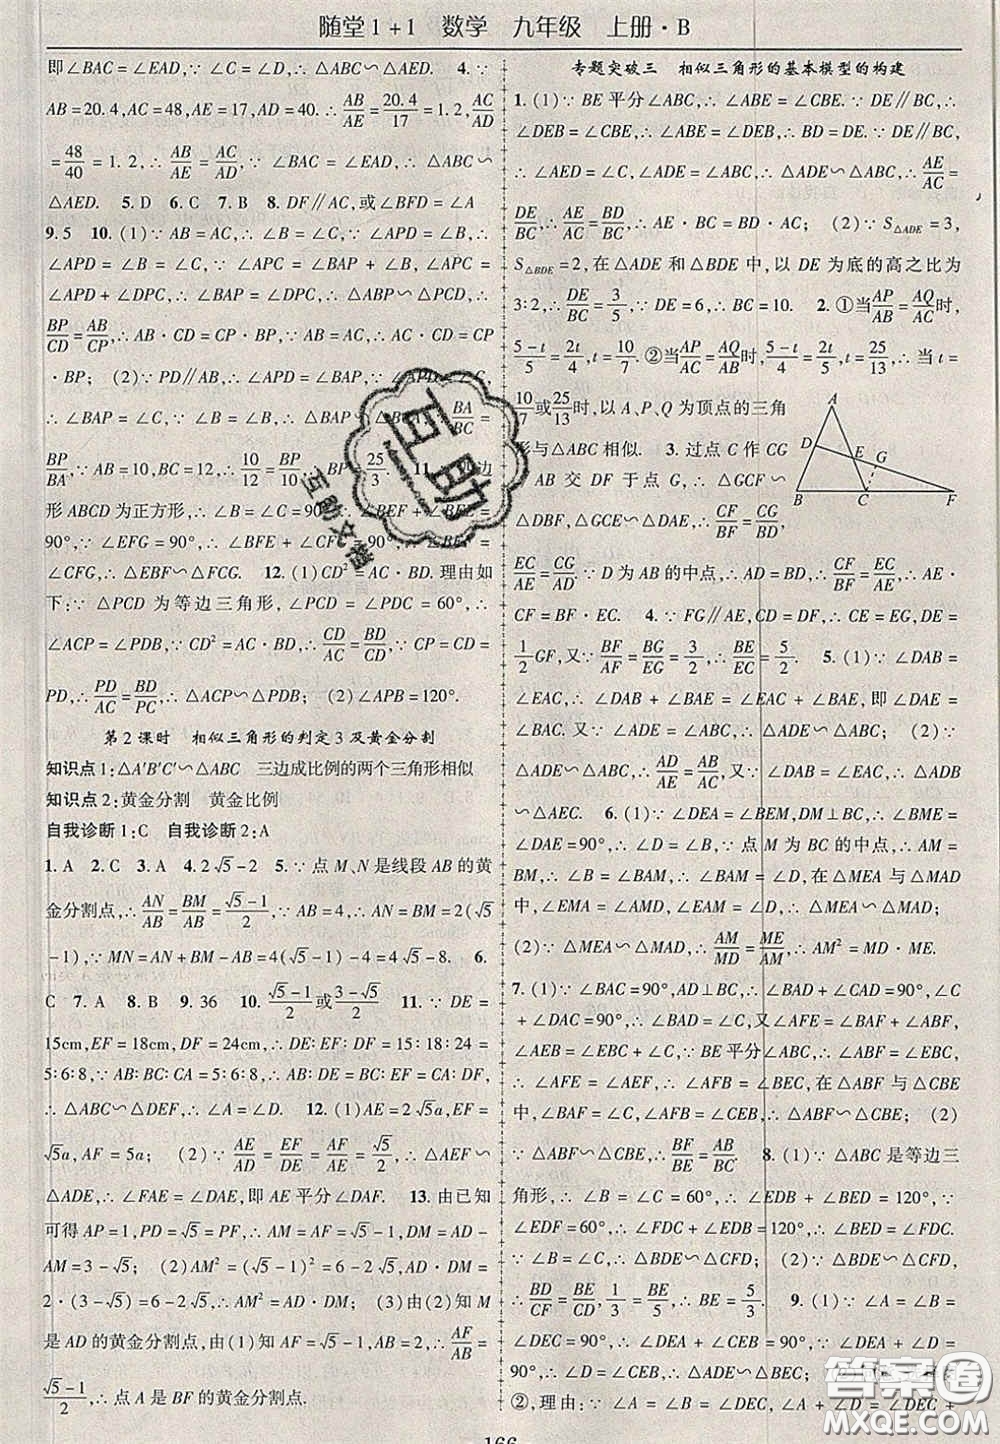 随堂1+1 数学 九年级 上册·B
即∠BAC=∠EAD,∵∠B=∠E,∴△ABC∽△AED. 4.∵
AB=20.4,AC=48,AE=17,AD=40,∴AB/AE=20.4/17=1.2,AC/AD
=48/40=1.2,∴AB/AE=AC/AD,∵∠BAC=∠EAD,∴△ABC∽
△AED. 5.D 6.C 7.B 8.DF∥AC,或∠BFD=∠A
9.5 10.(1)∵AB=AC,∴∠B=∠C,∵∠APC=∠BAP+∠B,∴
∠APD=∠B=∠C,∵∠APC=∠BAP+∠B,∴
∠APD+∠DPC,∴∠BAP=∠DPC,∴△ABP∽△PCD,∴
BP/CD=AB/CP,∴AB·CD=CP·BP,∵AB=AC,∴AC·CD=CP
·BP; (2)∵PD∥AB,∴∠APD=∠BAP,
∴∠BAP=∠C,∵∠B=∠B,∴△BAP∽ BA/BC=
BP/BA.∵AB=10,BC=12,∴10/12=BP/10,∴BP=25/3. 11. 边
形ABCD为正方形,∴∠B=∠C=90°,∴∠BEF+∠BFE=
90°,∵∠EFG=90°,∴∠BFE+∠CFG=90°,∴∠BEF=
∠CFG,∴△EBF∽△FCG. 12.(1)CD²=AC·BD.理由如
下:∵△PCD为等边三角形,∴∠PCD=∠PDC=60°,∴
∠ACP=∠PDB,∵CD²=AC·BD,∴CD/AC=BD/CD,∵CP=CD=
PD,∴PD/AC=BD/PC,∴△ACP∽△PDB; (2)∠APB=120°.
第2课时 相似三角形的判定3及黄金分割
知识点1:△A′B′C′∽△ABC 三边成比例的两个三角形相似
知识点2:黄金分割 黄金比例
自我诊断1:C 自我诊断2:A
1.A 2.C 3.A 4.2√5-2 5.∵点M、N是线段AB的黄
金分割点,∴AN/AB=BM/AB=(√5-1)/2,∵AB=4,∴AN=BM=2(√5
-1),∵MN=AN+BM-AB=4(√5-1)-4=4√5-8 6.
C 7.A 8.B 9.36 10.(√5-1)/2或(3-√5)/2 11.∵DE=
15cm,EF=18cm,DF=24cm,∴DE∶EF∶DF=15∶18∶24=
5∶6∶8,∵AB∶BC∶CA=5∶6∶8,∴AB∶BC∶CA=DE∶EF∶DF,
∴△ABC∽△DEF,∴∠A=∠D. 12.(1)AE=2√5a,EF=
√5a,AF=5a; (2)∵AE/AD=EF/DE=AF/AE=√5/2,∴△AEF∽
△ADE,∴∠FAE=∠DAE,即AE平分∠DAF. 13.由已知
可得AP=1,PD=√5=PF,∴AM=AF=√5-1,DM=AD-
AM=3-√5; (2)AM²=(√5-1)²=6-2√5,AD·DM=
2·(3-√5)=6-2√5,∴AM²=AD·DM; (3)由(2)知M
是AD的黄金分割点,由(1)知AF=√5-1,BF=2,∴AF/BF=
(√5-1)/2,∴点A是BF的黄金分割点.
专题突破三 相似三角形的基本模型的构建
1.(1)∵BE平分∠ABC,∴∠ABE=∠CBE.∵DE∥BC,∴
∠DEB=∠CBE,∴∠ABE=∠DEB,∴BD=DE.∵DE∥BC,
∴∠AED=∠C,∵∠A=∠A,∴△ADE∽△ABC,∴AE/AC=
DE/BC,∴AE/AC=BD/BC,∴AE·BC=BD·AC; (2)∵S△ADE=3,
S△BDE=2,在△ADE和△BDE中,以DE为底的高之比为
3∶2,∴DE/BC=3/5,∵DE=6,∴BC=10. 2.①当AP/AB=AQ/AC时,
(5-t)/5=2t/4,t=10/7. ②当AP/AC=AQ/AB时,(5-t)/4=2t/5,t=25/13,∴当t=
10/7或25/13时,以A、P、Q为顶点的三角
形与△ABC相似. 3.过点C作CG
∥AB交DF于点G,∴△GCF∽
△DBF,△GCE∽△DAE,∴CF/BF=CG/BD,
EC/AE=CG/AD.∵D为AB的中点,∴CF/BF=EC/AE,∴AE·
CF=BF·EC. 4.∵FG∥AE,CD=DF,∴CE=EG,DE=
1/2GF,又∵BF/AF=BG/EG=3/2,∴BE/EC=5/2 5.(1)∵∠DAB=
∠EAC,∴∠DAB+∠BAE=∠EAC+∠BAE,即∠DAE=
∠BAC.又∵∠ADE=∠ABC,∴△ADE∽△ABC; (2)∵
△ADE∽△ABC,∴AD/AE=AB/AC,又∵∠DAB=∠EAC,∴△ADB
∽△AEC. 6.(1)∵∠DEA=∠BEM,DM⊥BC,∴∠BME=
∠DAE=90°,∴∠B=∠D,∵点M为BC的中点,∴AM=
BM,∴∠B=∠MAB,∴∠D=∠MAB,∴在△MEA与△MAD
中,∠EMA=∠AMD,∠MAE=∠D,∴△MEA∽△MAD;
(2)∵△MEA∽△MAD,∴AM/MD=ME/AM,∴AM²=MD·ME.
7.(1)∵∠BAC=90°,AD⊥BC,∴∠BAD+∠CAD=90°,∠C
+∠DAC=90°,∴∠BAD=∠C,又∠AFE=∠BAF+∠ABF,
∠AEB=∠EBC+∠C;∵BE平分∠ABC,∴∠ABF=∠EBC,
∴∠AFE=∠AEF,∴∠AFB=∠BEC,在△ABF与△CBE
中,∠BAF=∠C,∠AFB=∠CEB,∴△ABF∽△CBE; (2)
∵△ABF∽△CBE,∴BF/BE=AB/BC 8.(1)∵△ABC是等边三
角形,∴∠B=∠C=60°,∴∠EDB+∠BED=120°,∵
∠EDF=60°,∴∠FDC+∠EDB=120°,∴∠BED=∠FDC.
∵∠B=∠C,∴△BDE∽△CFD; (2)∵△BDE∽△CFD,
∴BD/CF=BE/CD,∴1/3=BE/5,∴BE=5/3. 9.(1)∵∠A=∠B=
∠DEC=90°,∴∠DEA+∠CEB=90°,∵∠DEA+∠D=
90°,∴∠D=∠CEB,∴△ADE∽△BEC; (2)
②,理由:∵∠A=∠B=∠DEC=α,∴∠A+∠D=∠DEC+
A
D
E
G
B
C
F
166
互助
互助文档
答案圈
MXQE.COM